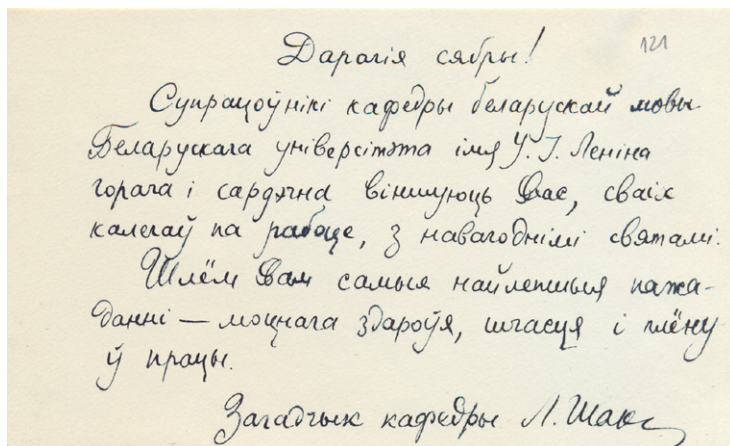 Дарагія сябры! 121
Супрацоўнікі кафедры беларускай мовы
Беларускага універсітэта імя У. І. Леніна
горача і сардэчна віншуюць Вас, сваіх
калегаў па рабоце, з навагоднімі святамі.
Шлём Вам самыя найлепшыя пажа-
данні — моцнага здароўя, шчасця і плёну
ў працы.
Загадчык кафедры Л. Шак